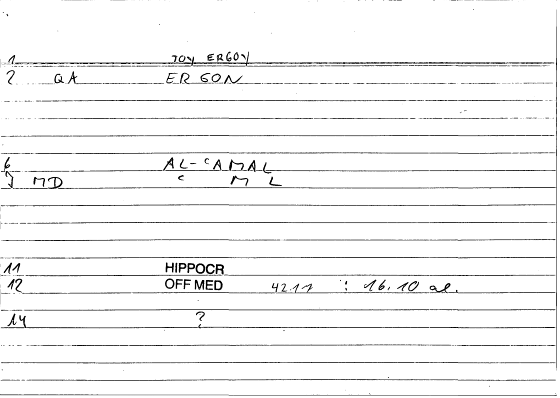 1 TOY ERGOY
2 QA ERGON
6 AL-ʿAMAL
7 MD ʿ M L
11 HIPPOCR
12 OFF MED 42.11 : 16.10 al.
14 ?